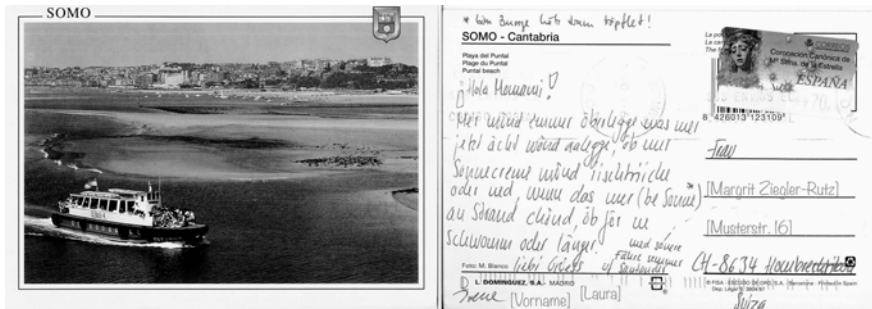 SOMO
* bim Zmorge häts dann tröpflet!
SOMO - Cantabria
Playa del Puntal
Plage du Puntal
Puntal beach
¡Hola Mamami!
Mer münd emmer öberlegge was mer
jetzt ächt münd aalegge, ob mer
Sonnecreme münd iischtriiche
oder ned, wenn das mer (be Sonne*)
an Strand chönd, ob för
Schwumm oder länger.
med sonere
Fähre emmer
uf Santander
liebi Grüess
Irene [Vorname] [Laura]
Foto: M. Blanco
L. DOMINGUEZ, S.A. - MADRID
CORREOS
Coronación Canónica de
Mª Stma. de la Estrella
ESPAÑA
8 426013 123109
Frau
[Margrit Ziegler-Rutz]
[Musterstr. 16]
CH-8634 Hombrechtikon
Suiza
© FISA - ESCUDO DE ORO, S.A. - Barcelona - Printed in Spain